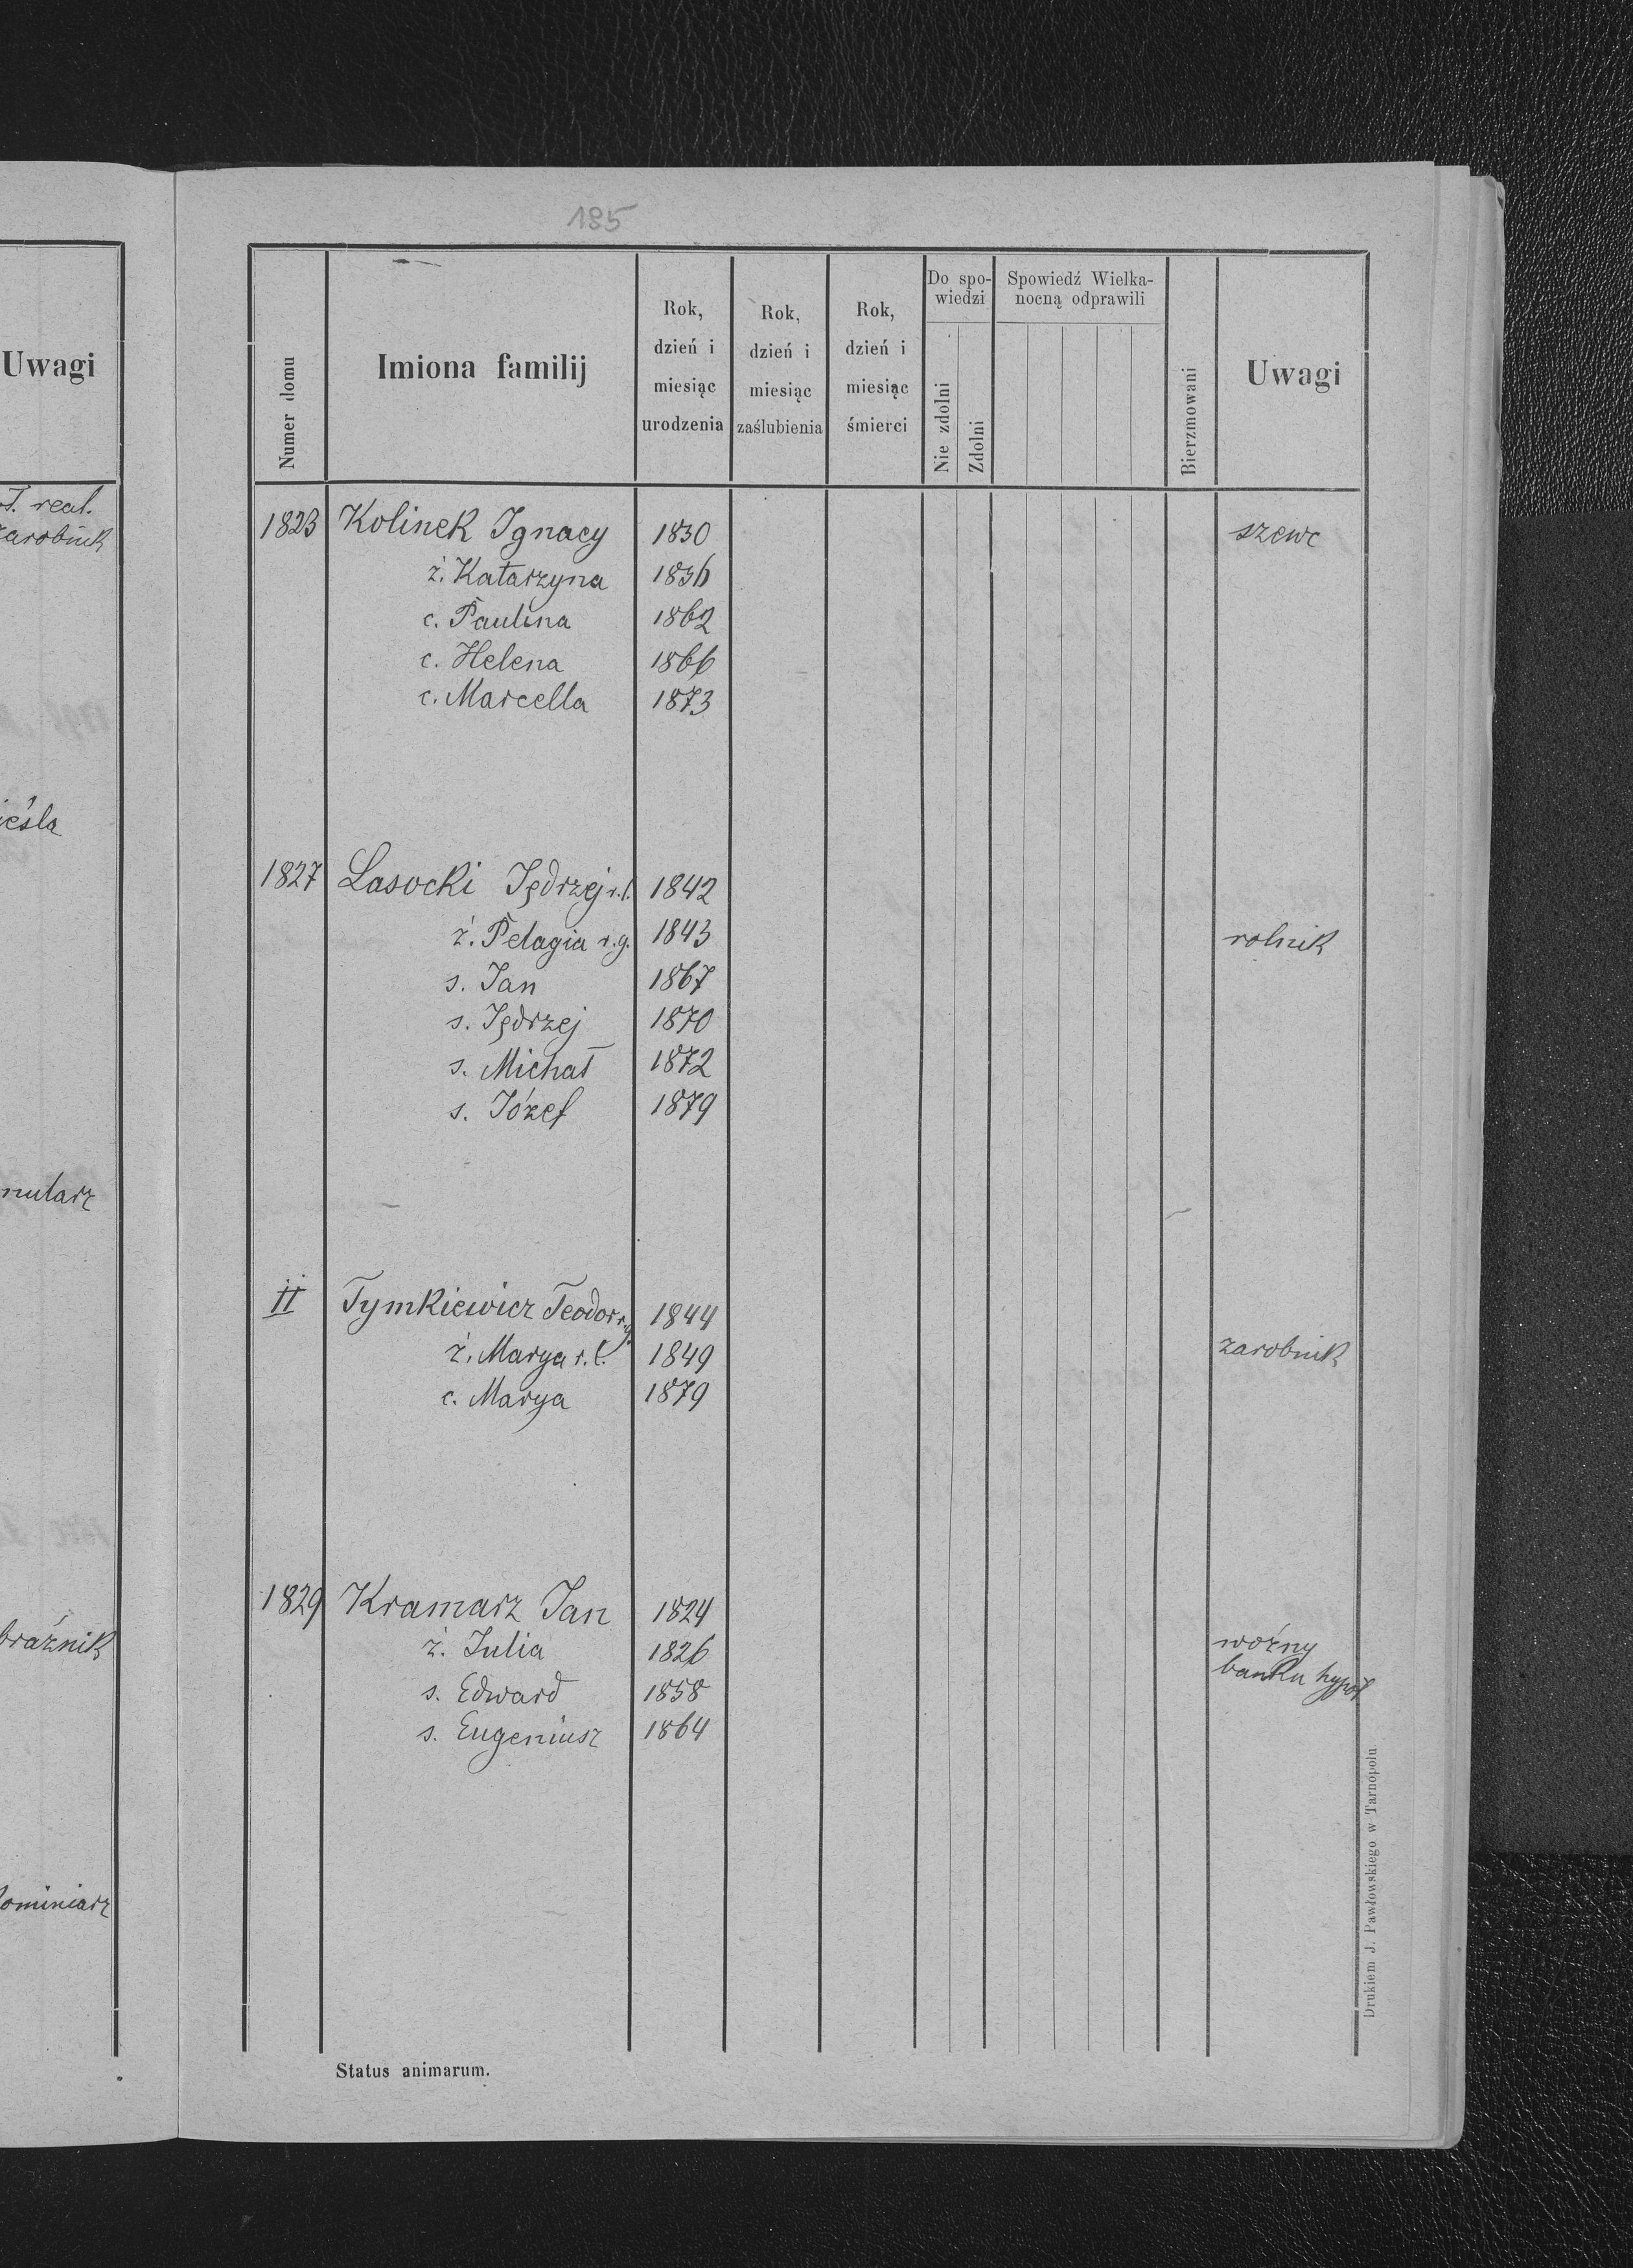 Uwagi
real.
zarobnik
185
Numer domu
Imiona familij
Rok, dzień i miesiąc urodzenia
Rok, dzień i miesiąc zaślubienia
Rok, dzień i miesiąc śmierci
Do spo-
wiedzi
Nie zdolni
Zdolni
Spowiedź Wielka-
nocną odprawili
Bierzmowani
Uwagi
1823 Kolinek Ignacy 1830 szewc
ż. Katarzyna 1836
c. Paulina 1862
c. Helena 1866
c. Marcella 1873
1827 Lasocki Jędrzej r.l. 1842
ż. Pelagia r.g. 1843 rolnik
s. Jan 1867
s. Jędrzej 1870
s. Michał 1872
s. Józef 1879
II Tymkiewicz Teodor r.g. 1844
ż. Marya r.l. 1849 zarobnik
c. Marya 1879
1829 Kramarz Jan 1824
ż. Julia 1826 woźny
s. Edward 1858 banku hypot
s. Eugeniusz 1864
Status animarum.
Drukiem J. Pawłowskiego w Tarnopolu